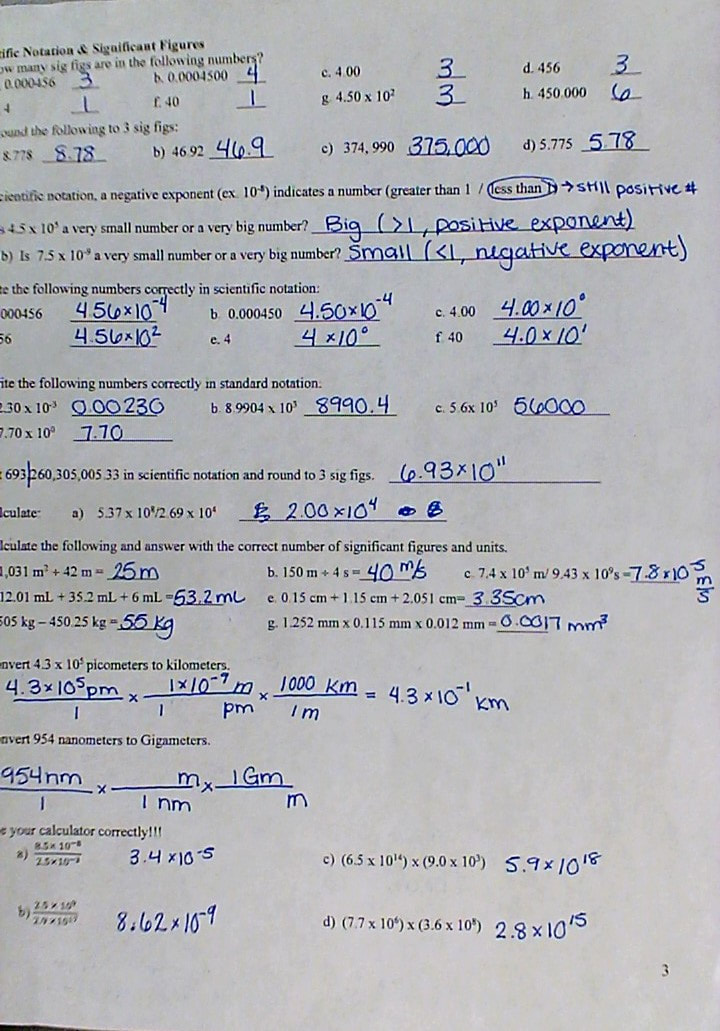 ific Notation & Significant Figures
ow many sig figs are in the following numbers?
0.000456 3 b. 0.0004500 4 c. 4.00 3 d. 456 3
4 1 f. 40 1 g. 4.50 x 10² 3 h. 450.000 6
ound the following to 3 sig figs:
8.778 8.78 b) 46.92 46.9 c) 374,990 375,000 d) 5.775 5.78
cientific notation, a negative exponent (ex. 10⁻⁸) indicates a number (greater than 1 / less than 1) → still positive #
s 4.5 x 10⁵ a very small number or a very big number? Big (>1, positive exponent)
b) Is 7.5 x 10⁻⁹ a very small number or a very big number? Small (<1, negative exponent)
te the following numbers correctly in scientific notation:
000456 4.56×10⁻⁴ b. 0.000450 4.50×10⁻⁴ c. 4.00 4.00 × 10⁰
56 4.56×10² e. 4 4 ×10⁰ f. 40 4.0 × 10¹
ite the following numbers correctly in standard notation.
2.30 x 10⁻³ 0.00230 b. 8.9904 x 10³ 8990.4 c. 5.6x 10⁵ 56000
7.70 x 10⁰ 7.70
693,260,305,005.33 in scientific notation and round to 3 sig figs. 6.93×10¹¹
lculate: a) 5.37 x 10⁸/2.69 x 10⁴ 2.00 ×10⁴
lculate the following and answer with the correct number of significant figures and units.
1,031 m² ÷ 42 m = 25m b. 150 m ÷ 4 s = 40 m/s c. 7.4 x 10⁵ m/ 9.43 x 10⁹s = 7.8×10⁻⁵ m/s
12.01 mL + 35.2 mL + 6 mL = 53.2mL e. 0.15 cm + 1.15 cm + 2.051 cm= 3.35cm
505 kg – 450.25 kg = 55 kg g. 1.252 mm x 0.115 mm x 0.012 mm = 0.0017 mm³
nvert 4.3 x 10⁵ picometers to kilometers.
4.3×10⁵pm × 1×10⁻⁹ m × 1000 km = 4.3×10⁻¹ km
1 1 pm 1m
nvert 954 nanometers to Gigameters.
954nm × m × 1Gm
1 1 nm m
e your calculator correctly!!!
a) 8.5x 10⁻⁸ 3.4 ×10⁻⁵ c) (6.5 x 10¹⁴) x (9.0 x 10³) 5.9×10¹⁸
2.5×10⁻³
b) 8.62×10⁻⁹ d) (7.7 x 10⁶) x (3.6 x 10⁸) 2.8×10¹⁵
3